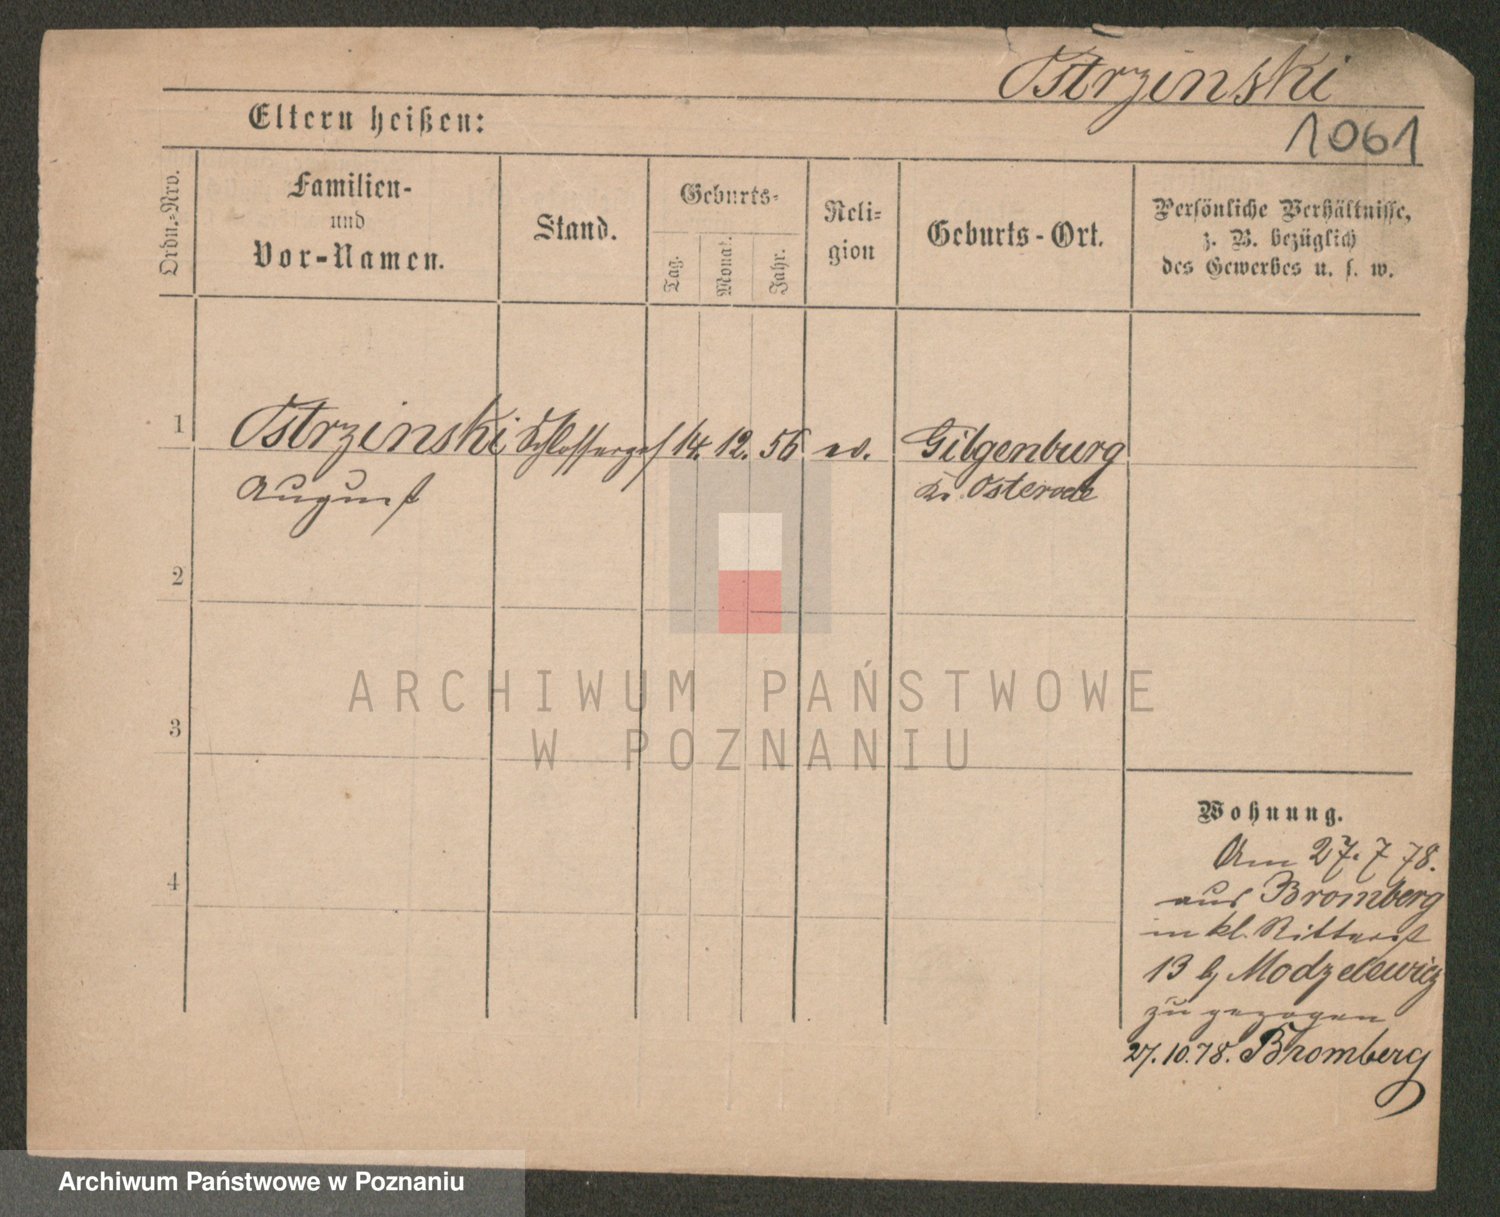 Ostrzinski
Eltern heißen:
1061
Ordn.=Nro.
Familien-
und
Vor-Namen.
Stand.
Geburts-
Tag.
Monat.
Jahr.
Reli-
gion
Geburts-Ort.
Persönliche Verhältnisse,
z. B. bezüglich
des Gewerbes u. s. w.
1
Ostrzinski Schlosserges 14. 12. 56 ev. Gilgenburg
August Kr. Osterode
2
3
4
Wohnung.
Am 27. 7 78.
aus Bromberg
in kl. Ritterst
13 b Modzelewicz
zu gezogen
27. 10. 78. Bromberg
ARCHIWUM PAŃSTWOWE
W POZNANIU
Archiwum Państwowe w Poznaniu